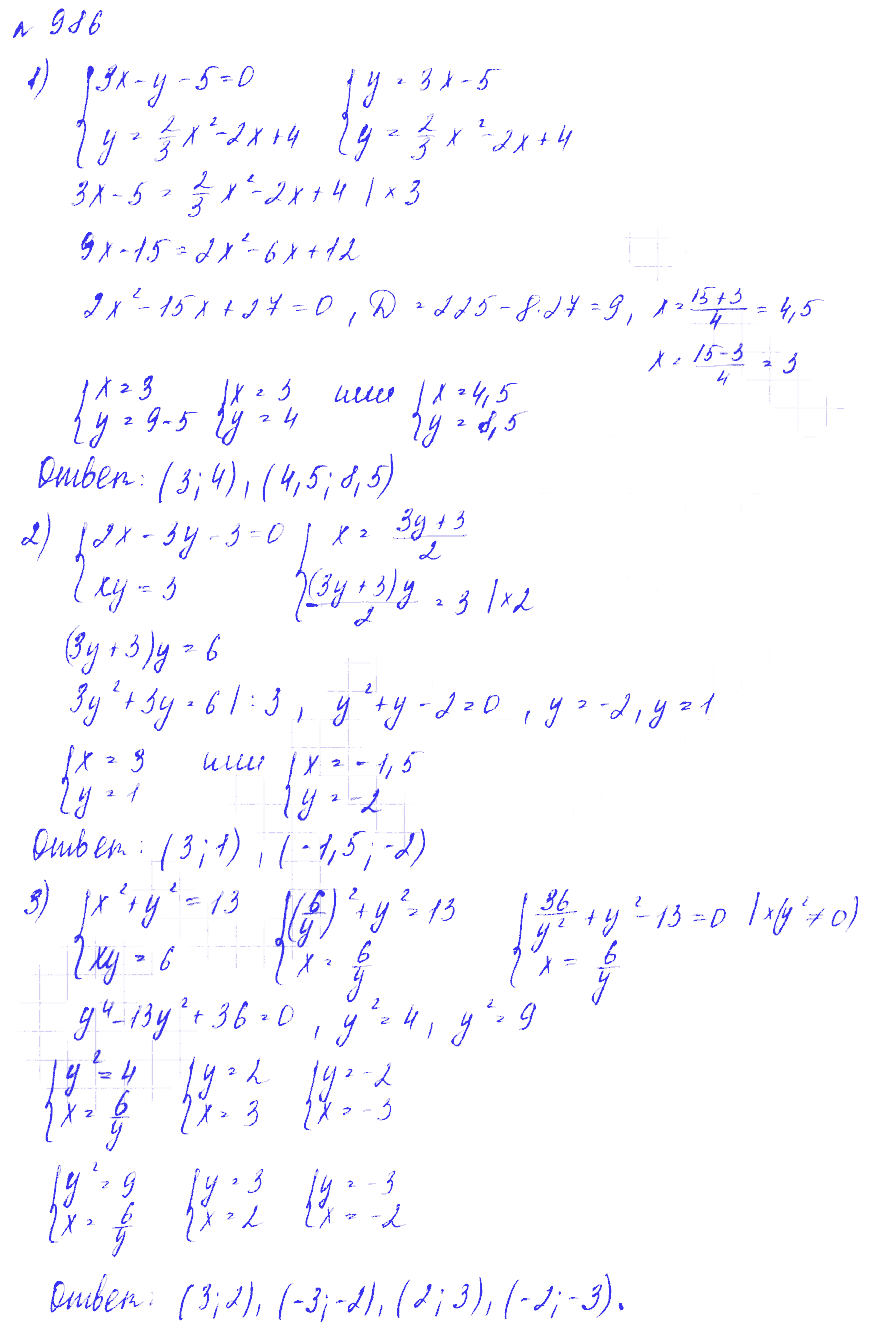 № 986
1) { 3x - y - 5 = 0 { y = 3x - 5
{ y = 2/3 x² - 2x + 4 { y = 2/3 x² - 2x + 4
3x - 5 = 2/3 x² - 2x + 4 | × 3
9x - 15 = 2x² - 6x + 12
2x² - 15x + 27 = 0 , D = 225 - 8·27 = 9, x = (15+3)/4 = 4,5
x = (15-3)/4 = 3
{ x = 3 { x = 3 или { x = 4,5
{ y = 9 - 5 { y = 4 { y = 8,5
Ответ: (3; 4), (4,5; 8,5)
2) { 2x - 3y - 3 = 0 { x = (3y+3)/2
{ xy = 3 { (3y+3)y/2 = 3 | × 2
(3y + 3)y = 6
3y² + 3y = 6 | : 3 , y² + y - 2 = 0 , y = -2, y = 1
{ x = 3 или { x = -1,5
{ y = 1 { y = -2
Ответ: (3; 1) , (-1,5; -2)
3) { x² + y² = 13 { (6/y)² + y² = 13 { 36/y² + y² - 13 = 0 | × (y² ≠ 0)
{ xy = 6 { x = 6/y { x = 6/y
y⁴ - 13y² + 36 = 0 , y² = 4, y² = 9
{ y² = 4 { y = 2 { y = -2
{ x = 6/y { x = 3 { x = -3
{ y² = 9 { y = 3 { y = -3
{ x = 6/y { x = 2 { x = -2
Ответ: (3; 2), (-3; -2), (2; 3), (-2; -3).